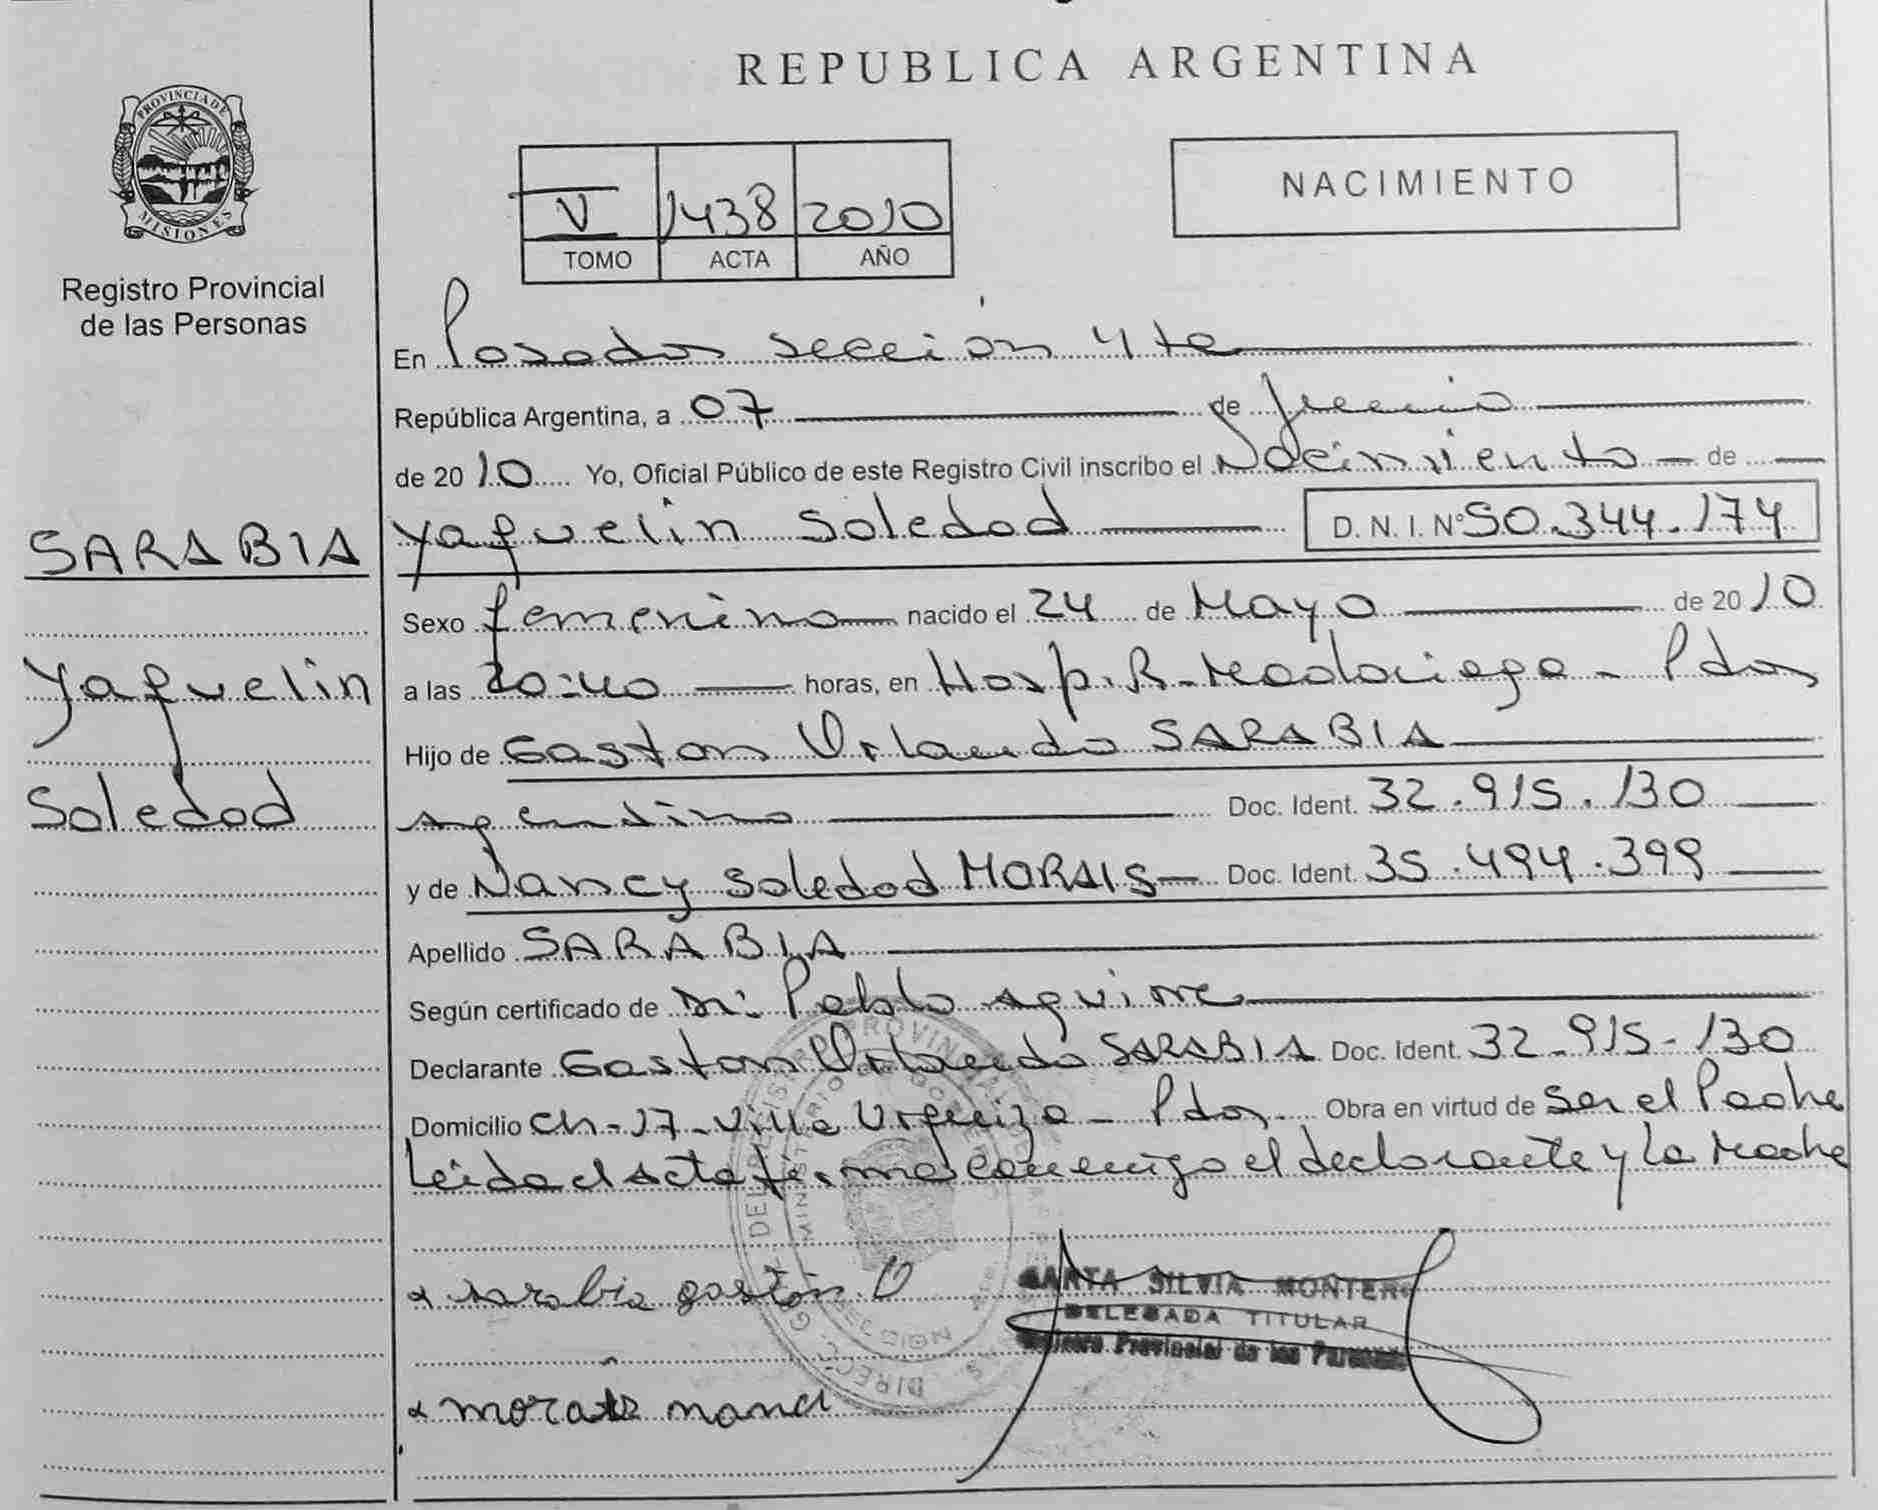 REPUBLICA ARGENTINA
PROVINCIA DE
MISIONES
Registro Provincial
de las Personas
V 1438 2010
TOMO ACTA AÑO
NACIMIENTO
En Posadas sección 4ta
República Argentina, a 07 de Junio
de 2010 Yo, Oficial Público de este Registro Civil inscribo el Nacimiento de
SARABIA
Yaquelin Soledad D. N. I. Nº 50.344.174
Sexo femenino nacido el 24 de Mayo de 2010
Yaquelin
a las 20:40 horas, en Hosp. R. Madariaga - Pdas
Hijo de Gaston Orlando SARABIA
Soledad
argentino Doc. Ident. 32.915.130
y de Nancy Soledad MORAIS Doc. Ident. 35.494.399
Apellido SARABIA
Según certificado de Dr: Pablo Aguirre
Declarante Gaston Orlando SARABIA Doc. Ident. 32.915.130
Domicilio Ch-17-Villa Urquiza - Pdas. Obra en virtud de Ser el Padre
Leida el Acta firma conmigo el declarante y la Madre
sarabia gastón O
MARTA SILVIA MONTERO
DELEGADA TITULAR
Registro Provincial de las Personas
morais nanci